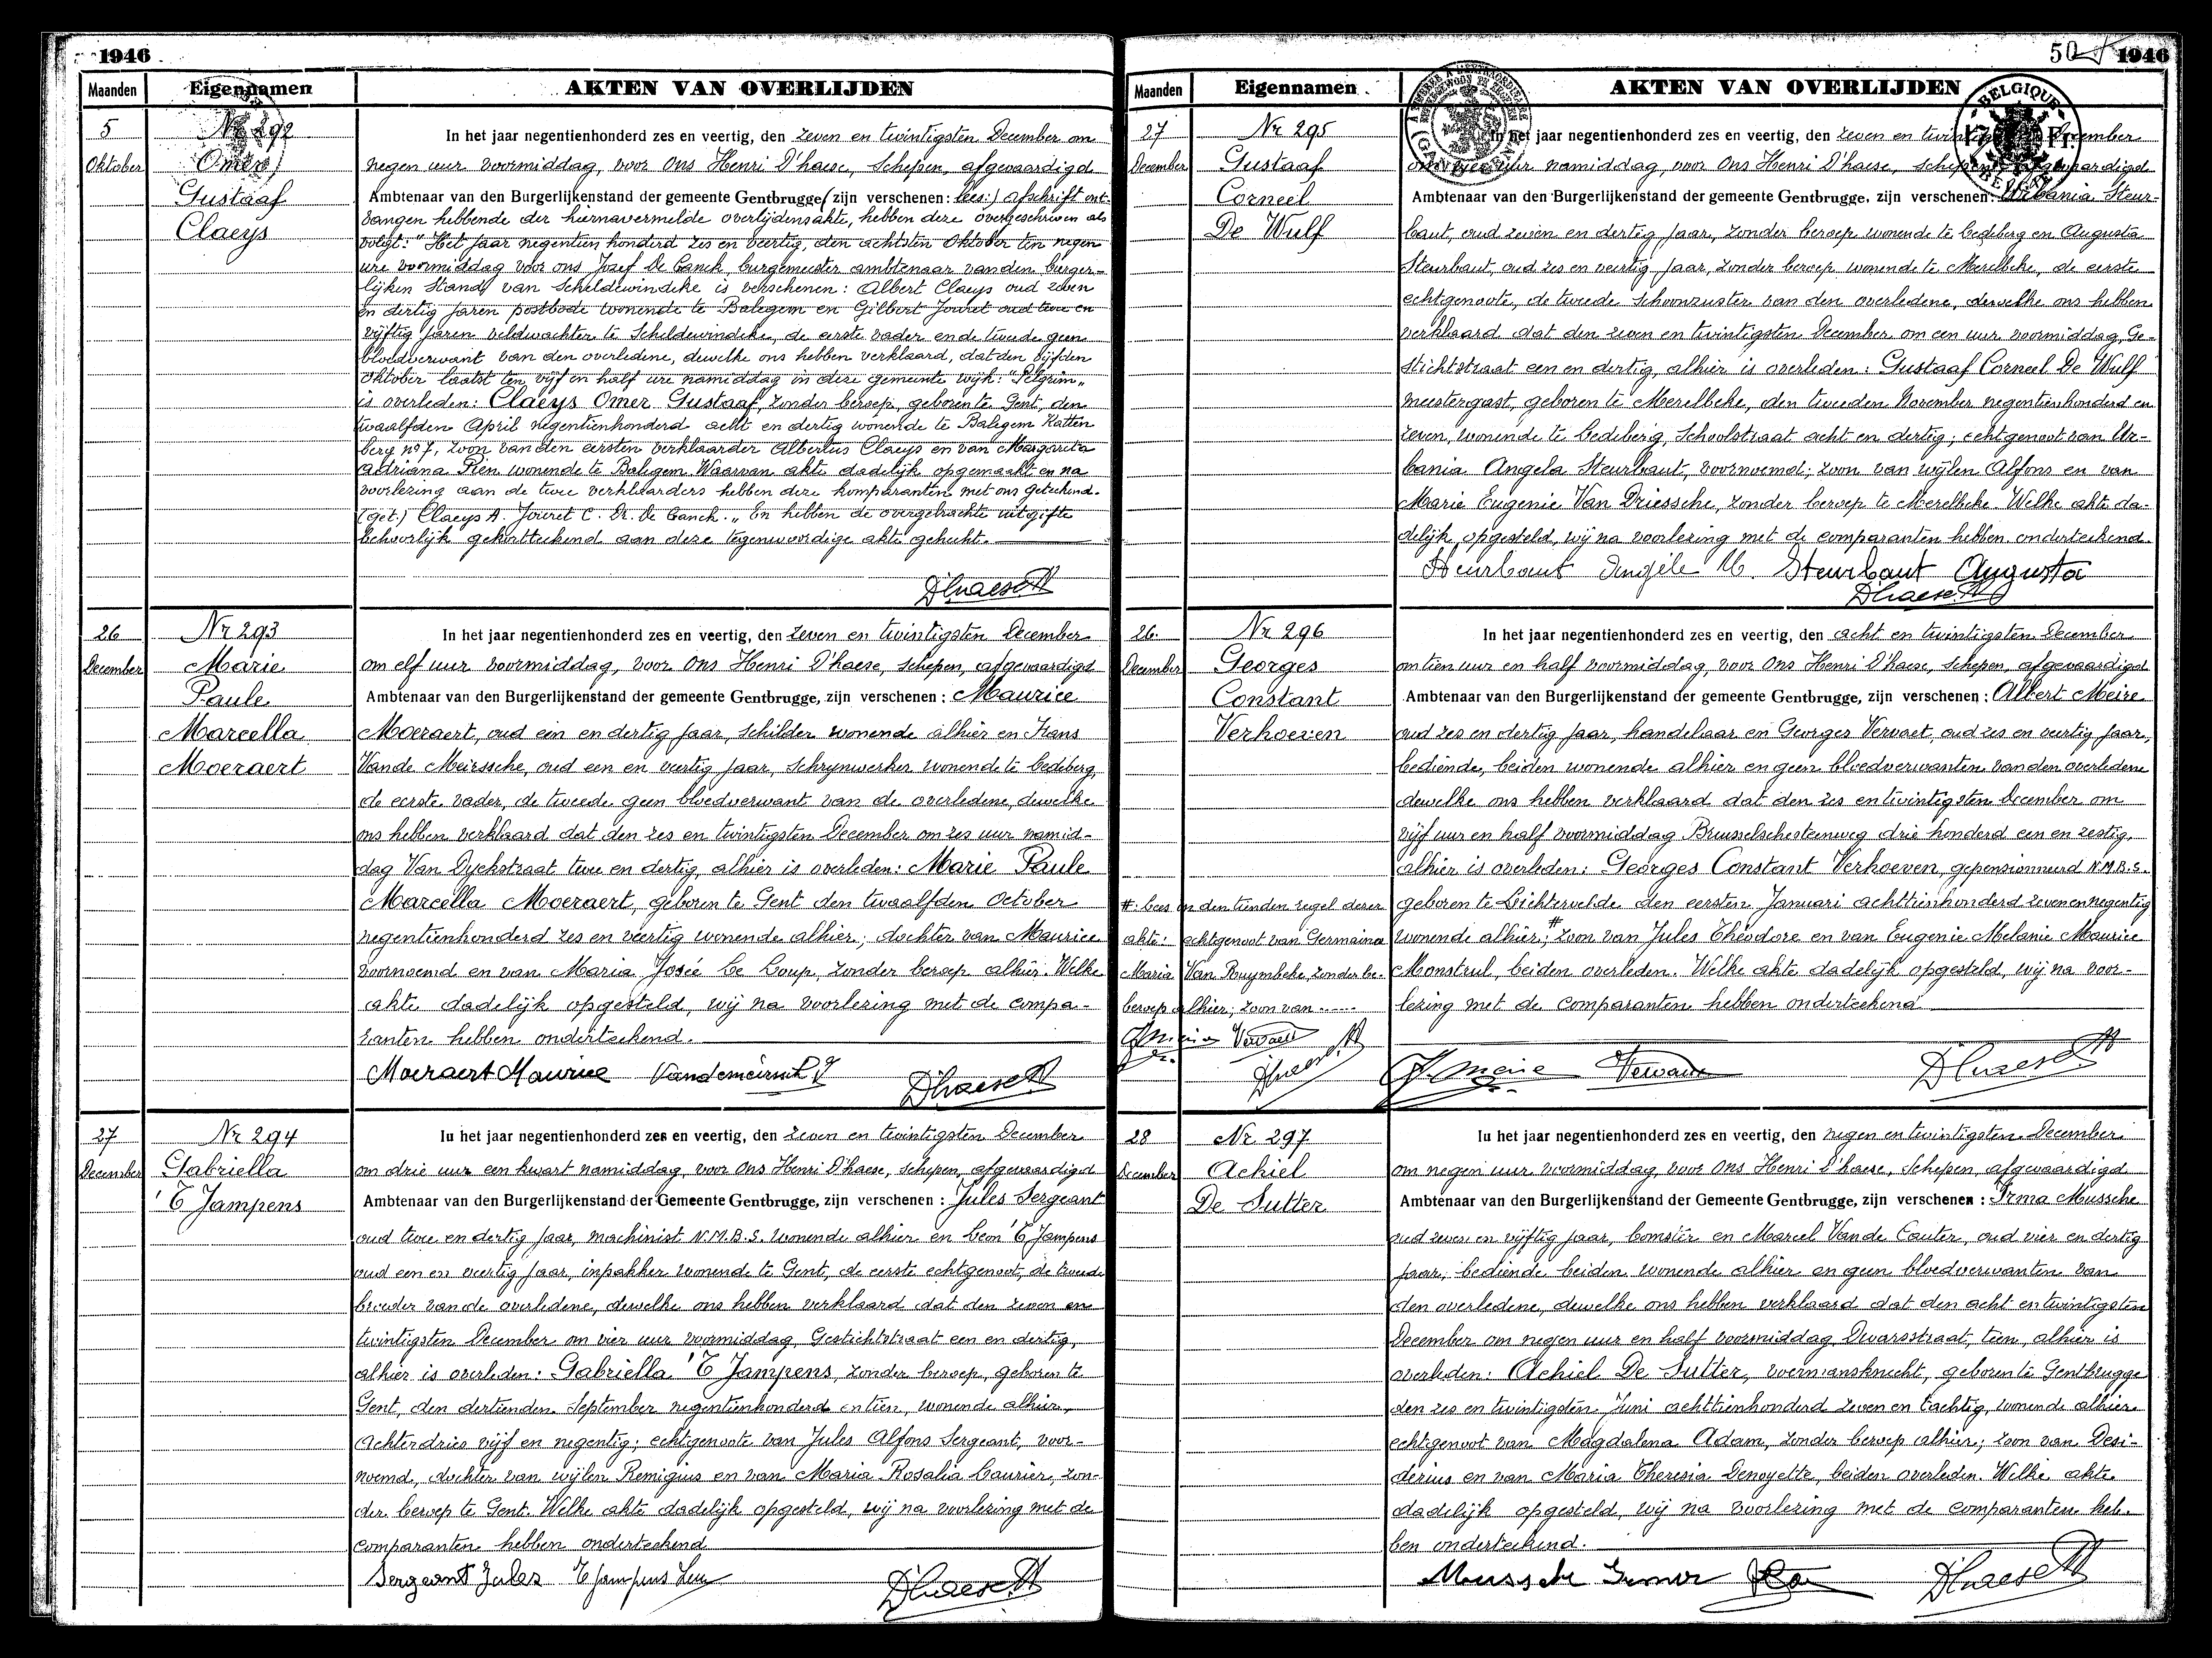 1946
Maanden Eigennamen AKTEN VAN OVERLIJDEN
5
Oktober
Nr 292
Omer
Gustaaf
Claeys
In het jaar negentienhonderd zes en veertig, den zeven en twintigsten December om
negen uur voormiddag, voor Ons Henri D'haese, Schepen, afgevaardigd
Ambtenaar van den Burgerlijkenstand der gemeente Gentbrugge (zijn verschenen: lees:) afschrift ont-
vangen hebbende der hiernavermelde overlijdensakte, hebben deze overgeschreven als
volgt: "Het jaar negentien honderd zes en veertig, den achtsten Oktober ten negen
ure voormiddag voor ons Jozef De Canck, burgemeester ambtenaar van den burger-
lijken Stand van Scheldewindeke is verschenen: Albert Claeys oud zeven
en dertig jaren postbode wonende te Balegem en Gilbert Jouret oud twee en
vijftig jaren veldwachter te Scheldewindeke, de eerste vader en de tweede geen
bloedverwant van den overledene, dewelke ons hebben verklaard, dat den vijfden
Oktober laatst ten vijf en half ure namiddag in deze gemeente wijk: "Pelgrim"
is overleden: Claeys Omer Gustaaf, zonder beroep, geboren te Gent, den
twaalfden April negentienhonderd acht en dertig wonende te Balegem Katten
berg no 7, zoon van den eersten verklaarder Albertus Claeys en van Margareta
Adriana Pien wonende te Balegem. Waarvan akte dadelijk opgemaakt en na
voorlezing aan de twee verklaarders hebben deze komparanten met ons geteekend.
(get.) Claeys A. Jouret C. Dr. De Canck." En hebben de overgebrachte uitgifte
behoorlijk gekantteekend aan deze tegenwoordige akte gehecht.
D'haese H
26
December
Nr 293
Marie
Paule
Marcella
Moeraert
In het jaar negentienhonderd zes en veertig, den zeven en twintigsten December
om elf uur voormiddag, voor Ons Henri D'haese, schepen, afgevaardigd
Ambtenaar van den Burgerlijkenstand der gemeente Gentbrugge, zijn verschenen: Maurice
Moeraert, oud een en dertig jaar, schilder wonende alhier en Frans
Vande Meirssche, oud een en veertig jaar, schrijnwerker wonende te Ledeberg,
de eerste vader, de tweede geen bloedverwant van de overledene, dewelke
ons hebben verklaard dat den zes en twintigsten December om zes uur namid-
dag Van Dyckstraat twee en dertig, alhier is overleden: Marie Paule
Marcella Moeraert, geboren te Gent den twaalfden October
negentienhonderd zes en veertig wonende alhier; dochter van Maurice
voornoemd en van Maria Josée Le Loup, zonder beroep alhier. Welke
akte dadelijk opgesteld, wij na voorlezing met de compa-
ranten hebben onderteekend.
Moeraert Maurice D'haese H
27
December
Nr 294
Gabriella
'T Jampens
In het jaar negentienhonderd zes en veertig, den zeven en twintigsten December
om drie uur een kwart namiddag, voor Ons Henri D'haese, schepen, afgevaardigd
Ambtenaar van den Burgerlijkenstand der Gemeente Gentbrugge, zijn verschenen: Jules Sergeant
oud twee en dertig jaar, machinist N.M.B.S. wonende alhier en Leon 'T Jampens
oud een en veertig jaar, inpakker wonende te Gent, de eerste echtgenoot, de tweede
broeder van de overledene, dewelke ons hebben verklaard dat den zeven en
twintigsten December om vier uur voormiddag, Gestichtstraat een en dertig,
alhier is overleden: Gabriella 'T Jampens, zonder beroep, geboren te
Gent, den dertienden September negentienhonderd en tien, wonende alhier,
Achterdries vijf en negentig; echtgenoote van Jules Alfons Sergeant, voor-
noemd, dochter van wijlen Remigius en van Maria Rosalia Laurier, zon-
der beroep te Gent. Welke akte dadelijk opgesteld, wij na voorlezing met de
comparanten hebben onderteekend
Sergeant Jules T Jampens Leon D'haese H
50 1946
Maanden Eigennamen AKTEN VAN OVERLIJDEN
BELGIQUE
27
December
Nr 295
Gustaaf
Corneel
De Wulf
In het jaar negentienhonderd zes en veertig, den zeven en twintigsten December
om vier uur namiddag, voor Ons Henri D'haese, schepen, afgevaardigd
Ambtenaar van den Burgerlijkenstand der gemeente Gentbrugge, zijn verschenen: Urbania Steur-
baut, oud zeven en dertig jaar, zonder beroep wonende te Ledeberg en Augusta
Steurbaut, oud zes en veertig jaar, zonder beroep wonende te Merelbeke, de eerste
echtgenoote, de tweede schoonzuster van den overledene, dewelke ons hebben
verklaard dat den zeven en twintigsten December om een uur voormiddag, Ge-
stichtstraat een en dertig, alhier is overleden: Gustaaf Corneel De Wulf
meestergast, geboren te Merelbeke, den tweeden November negentienhonderd en
zeven, wonende te Ledeberg, Schoolstraat acht en dertig; echtgenoot van Ur-
bania Angela Steurbaut, voornoemd; zoon van wijlen Alfons en van
Marie Eugenie Van Driessche, zonder beroep te Merelbeke. Welke akte da-
delijk opgesteld, wij na voorlezing met de comparanten hebben onderteekend.
Steurbaut Angèle U. Steurbaut Augusta
D'haese H
26
December
Nr 296
Georges
Constant
Verhoeven
In het jaar negentienhonderd zes en veertig, den acht en twintigsten December
om tien uur en half voormiddag, voor Ons Henri D'haese, schepen, afgevaardigd
Ambtenaar van den Burgerlijkenstand der gemeente Gentbrugge, zijn verschenen: Albert Meire
oud zes en dertig jaar, handelaar en Georges Vervaet, oud zes en veertig jaar,
bediende, beiden wonende alhier en geen bloedverwanten van den overledene
dewelke ons hebben verklaard dat den zes en twintigsten December om
vijf uur en half voormiddag Brusselschesteenweg drie honderd een en zestig,
alhier is overleden: Georges Constant Verhoeven, gepensionneerd N.M.B.S.
geboren te Lichtervelde den eersten Januari achttienhonderd zeven en negentig
wonende alhier;# zoon van Jules Théodore en van Eugenie Melanie Maurice
Monstrul, beiden overleden. Welke akte dadelijk opgesteld, wij na voor-
lezing met de comparanten hebben onderteekend
#: lees in den tienden regel dezer
akte: echtgenoot van Germaine
Maria Van Ruymbeke, zonder be-
beroep alhier; zoon van ......
A. Meire Vervaet D'haese H
A. Meire Vervaet D'haese H
28
December
Nr 297
Achiel
De Sutter
In het jaar negentienhonderd zes en veertig, den negen en twintigsten December
om negen uur voormiddag, voor Ons Henri D'haese, Schepen, afgevaardigd
Ambtenaar van den Burgerlijkenstand der Gemeente Gentbrugge, zijn verschenen: Irma Mussche
oud zeven en vijftig jaar, komster en Marcel Vande Cauter, oud vier en dertig
jaar, bediende beiden wonende alhier en geen bloedverwanten van
den overledene, dewelke ons hebben verklaard dat den acht en twintigsten
December om negen uur en half voormiddag, Dwarsstraat, tien, alhier is
overleden: Achiel De Sutter, voermansknecht, geboren te Gentbrugge
den zes en twintigsten Juni achttienhonderd zeven en tachtig, wonende alhier
echtgenoot van Magdalena Adam, zonder beroep alhier; zoon van Desi-
derius en van Maria Theresia Denoyette, beiden overleden. Welke akte
dadelijk opgesteld, wij na voorlezing met de comparanten heb-
ben onderteekend.
Mussche Irma D'haese H